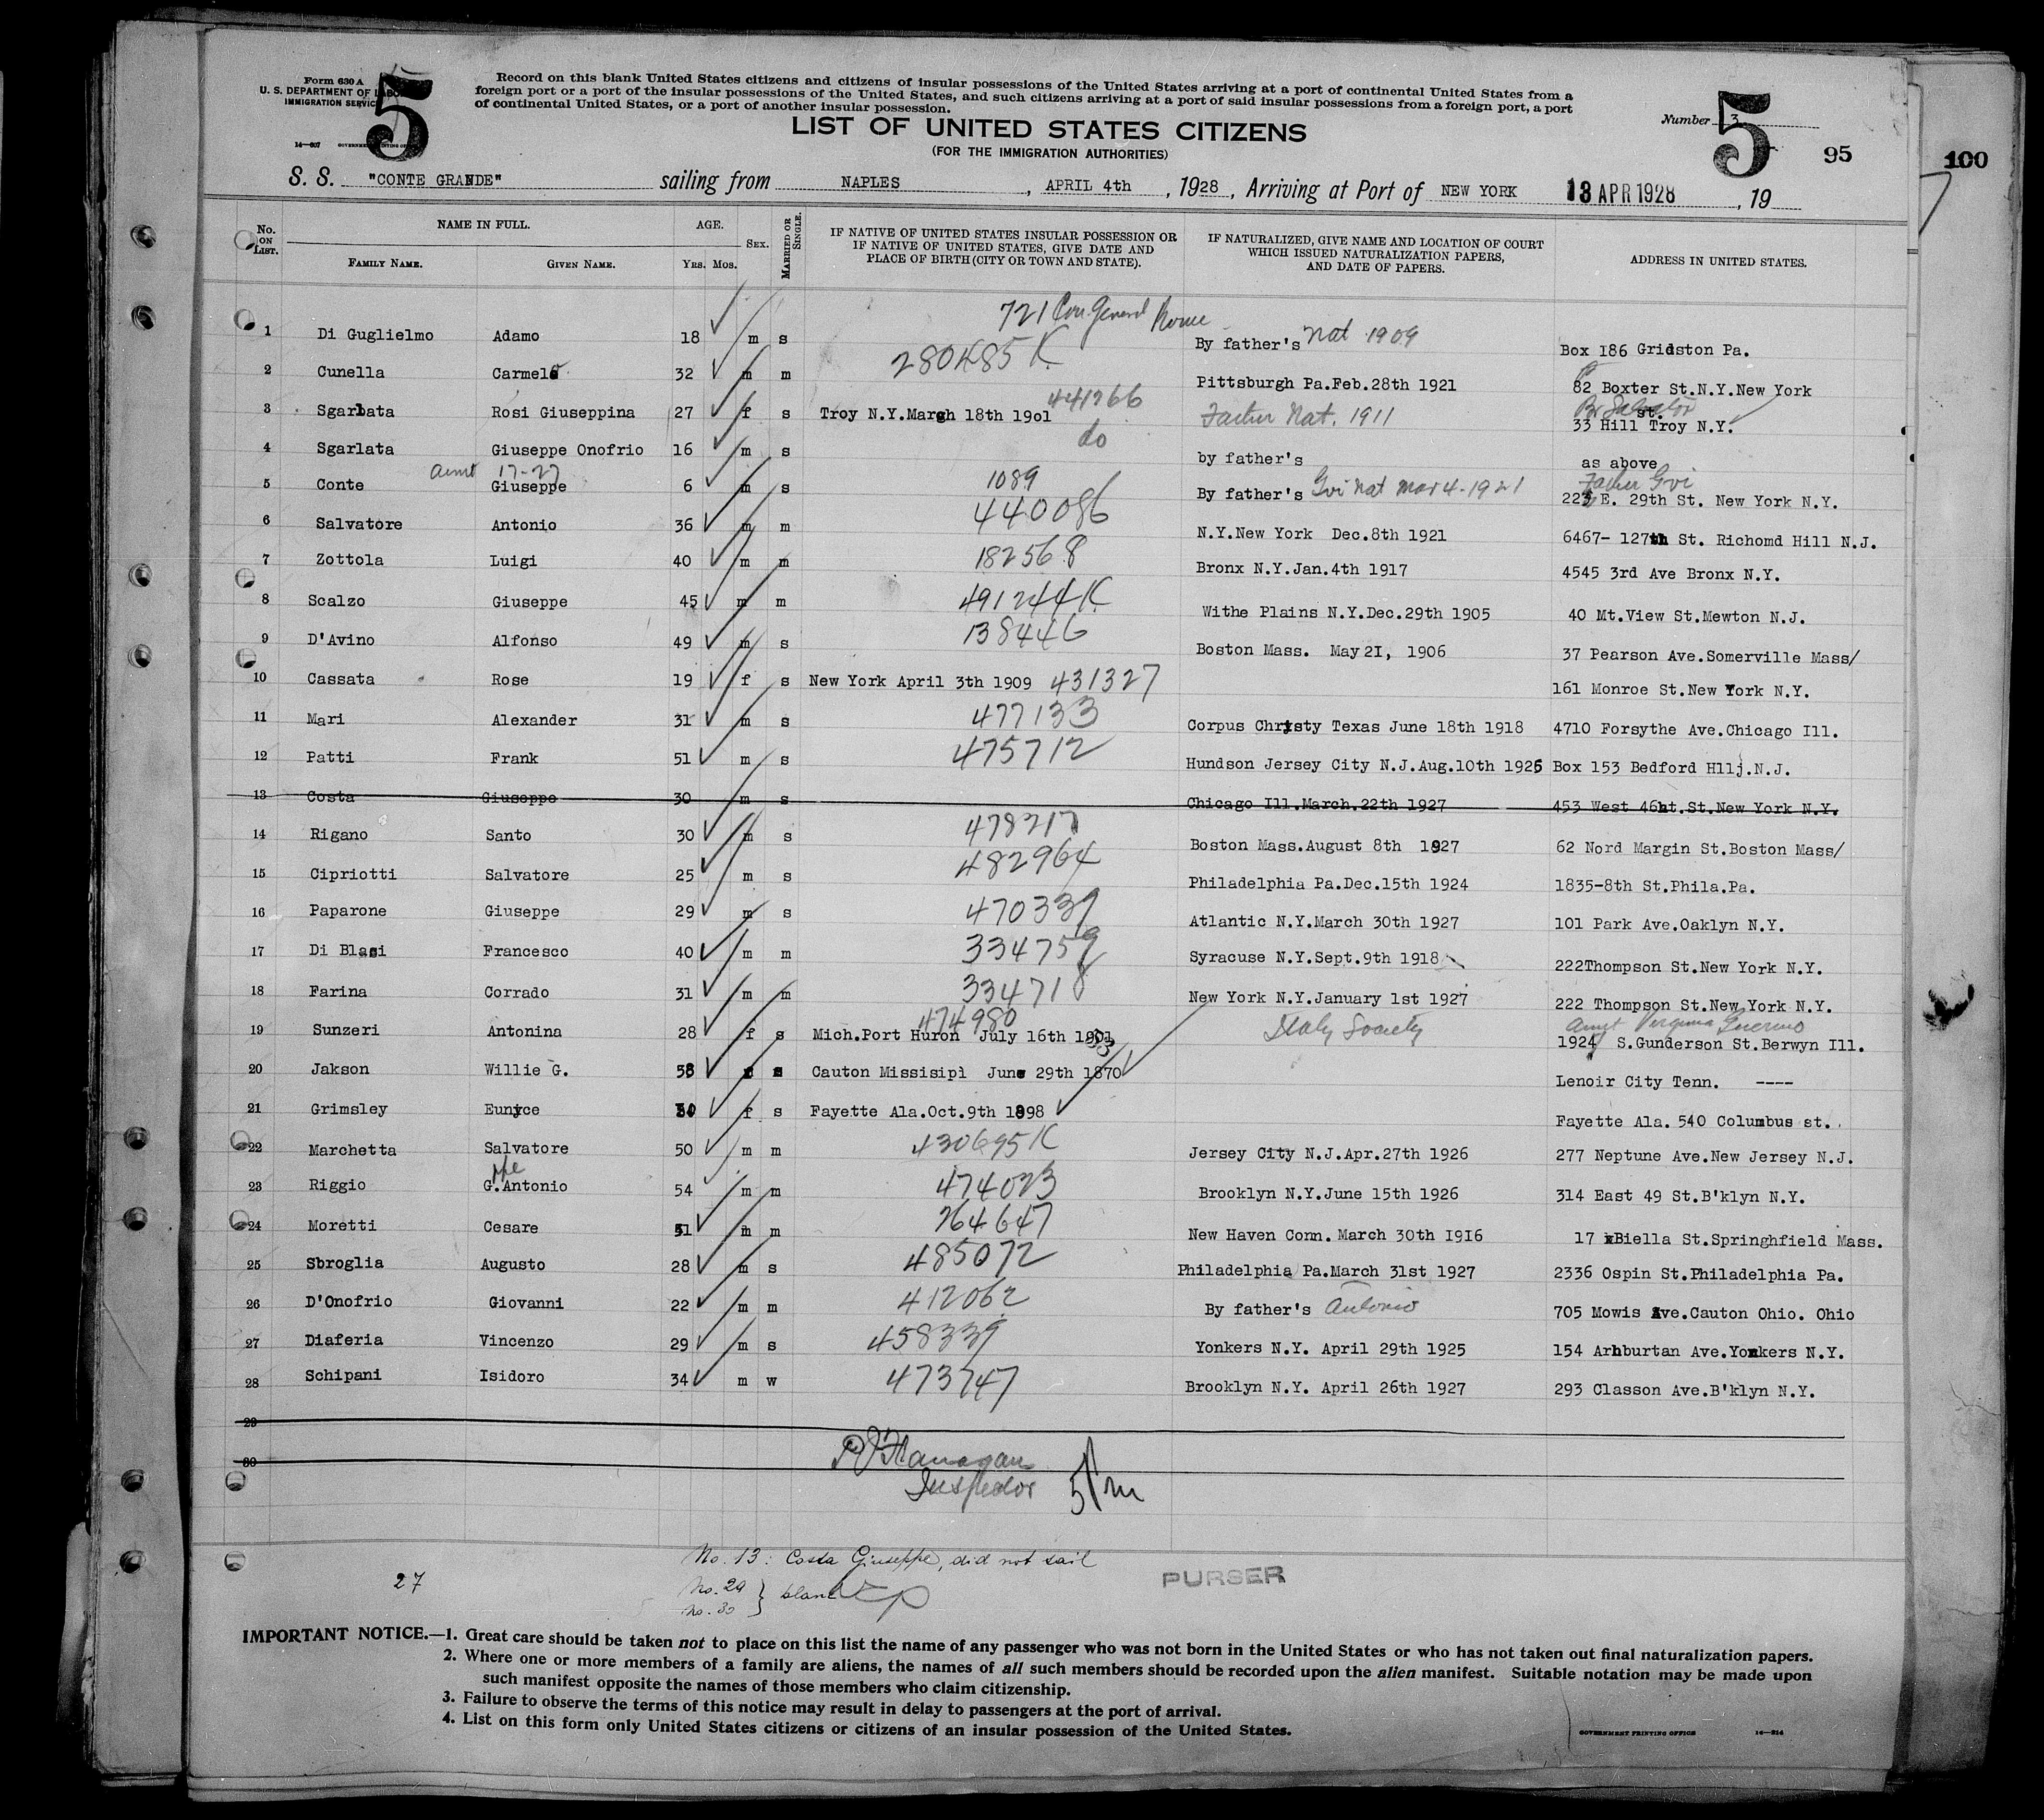 Form 630 A
U. S. DEPARTMENT OF LABOR
IMMIGRATION SERVICE
5
Record on this blank United States citizens and citizens of insular possessions of the United States arriving at a port of continental United States from a
foreign port or a port of the insular possessions of the United States, and such citizens arriving at a port of said insular possessions from a foreign port, a port
of continental United States, or a port of another insular possession.
LIST OF UNITED STATES CITIZENS
(FOR THE IMMIGRATION AUTHORITIES)
Number 3
5
95
100
S. S. "CONTE GRANDE" sailing from NAPLES, APRIL 4th, 1928, Arriving at Port of NEW YORK 13 APR 1928, 19
No. ON LIST. NAME IN FULL. FAMILY NAME. GIVEN NAME. AGE. YRS. MOS. SEX. MARRIED OR SINGLE. IF NATIVE OF UNITED STATES INSULAR POSSESSION OR IF NATIVE OF UNITED STATES, GIVE DATE AND PLACE OF BIRTH (CITY OR TOWN AND STATE). IF NATURALIZED, GIVE NAME AND LOCATION OF COURT WHICH ISSUED NATURALIZATION PAPERS, AND DATE OF PAPERS. ADDRESS IN UNITED STATES.
721 Con. General Rome
1 Di Guglielmo Adamo 18 m s By father's Nat 1909 Box 186 Gridston Pa.
2 Cunella Carmelo 32 m m 280485 K Pittsburgh Pa.Feb.28th 1921 82 Boxter St.N.Y.New York
3 Sgarlata Rosi Giuseppina 27 f s Troy N.Y.March 18th 19ol 441266 Father Nat. 1911 Br Salvator st. 33 Hill Troy N.Y.
4 Sgarlata Giuseppe Onofrio 16 m s do by father's as above
aunt 17-27
5 Conte Giuseppe 6 m s 1089 By father's Gvi Nat Mar 4-1921 Father Gvi 223 E. 29th St. New York N.Y.
6 Salvatore Antonio 36 m m 440086 N.Y.New York Dec.8th 1921 6467- 127th St. Richomd Hill N.J.
7 Zottola Luigi 40 m m 182568 Bronx N.Y.Jan.4th 1917 4545 3rd Ave Bronx N.Y.
8 Scalzo Giuseppe 45 m m 491244K Withe Plains N.Y.Dec.29th 1905 40 Mt.View St.Mewton N.J.
9 D'Avino Alfonso 49 m s 138446 Boston Mass. May 2I, 1906 37 Pearson Ave.Somerville Mass/
10 Cassata Rose 19 f s New York April 3th 1909 431327 161 Monroe St.New York N.Y.
11 Mari Alexander 31 m s 477133 Corpus Christy Texas June 18th 1918 4710 Forsythe Ave.Chicago Ill.
12 Patti Frank 51 m s 475712 Hundson Jersey City N.J.Aug.10th 1925 Box 153 Bedford Hllj.N.J.
13 Costa Giuseppe 30 m s Chicago Ill.March.22th 1927 453 West 46ht.St.New York N.Y.
14 Rigano Santo 30 m s 478217 Boston Mass.August 8th 1927 62 Nord Margin St.Boston Mass/
15 Cipriotti Salvatore 25 m s 482964 Philadelphia Pa.Dec.15th 1924 1835-8th St.Phila.Pa.
16 Paparone Giuseppe 29 m s 470339 Atlantic N.Y.March 30th 1927 101 Park Ave.Oaklyn N.Y.
17 Di Blasi Francesco 40 m m 334759 Syracuse N.Y.Sept.9th 1918 222Thompson St.New York N.Y.
18 Farina Corrado 31 m m 334718 New York N.Y.January 1st 1927 222 Thompson St.New York N.Y.
19 Sunzeri Antonina 28 f s 474980 Mich.Port Huron July 16th 1901 Italy Society aunt Virginia 1924 S.Gunderson St.Berwyn Ill.
20 Jakson Willie G. 58 s Cauton Missisipi June 29th 1870 Lenoir City Tenn. ----
21 Grimsley Eunyce 30 f s Fayette Ala.Oct.9th 1898 Fayette Ala. 540 Columbus st.
22 Marchetta Salvatore 50 m m 430695 K Jersey City N.J.Apr.27th 1926 277 Neptune Ave.New Jersey N.J.
23 Riggio G.ppe Antonio 54 m m 474023 Brooklyn N.Y.June 15th 1926 314 East 49 St.B'klyn N.Y.
24 Moretti Cesare 51 m m 264647 New Haven Conn. March 30th I9I6 17 Biella St.Springhfield Mass.
25 Sbroglia Augusto 28 m s 485072 Philadelphia Pa.March 31st 1927 2336 Ospin St.Philadelphia Pa.
26 D'Onofrio Giovanni 22 m m 412062 By father's Antonio 705 Mowis Ave.Cauton Ohio. Ohio
27 Diaferia Vincenzo 29 m s 458339 Yonkers N.Y. April 29th 1925 154 Arhburtan Ave.Yonkers N.Y.
28 Schipani Isidoro 34 m w 473747 Brooklyn N.Y. April 26th 1927 293 Classon Ave.B'klyn N.Y.
29
30
Flanagan
Inspector
No. 13: Costa Giuseppe, did not sail
27
No. 29
No. 30 } blank
PURSER
IMPORTANT NOTICE.—1. Great care should be taken not to place on this list the name of any passenger who was not born in the United States or who has not taken out final naturalization papers.
2. Where one or more members of a family are aliens, the names of all such members should be recorded upon the alien manifest. Suitable notation may be made upon
such manifest opposite the names of those members who claim citizenship.
3. Failure to observe the terms of this notice may result in delay to passengers at the port of arrival.
4. List on this form only United States citizens or citizens of an insular possession of the United States.
GOVERNMENT PRINTING OFFICE 14—214